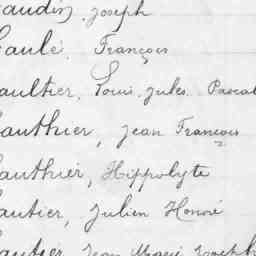 audin, Joseph
Gaulé, François
aultier, Louis Jules Pascal
Gauthier, Jean François
Gauthier, Hippolyte
autier, Julien Honoré
Jean Marie Joseph